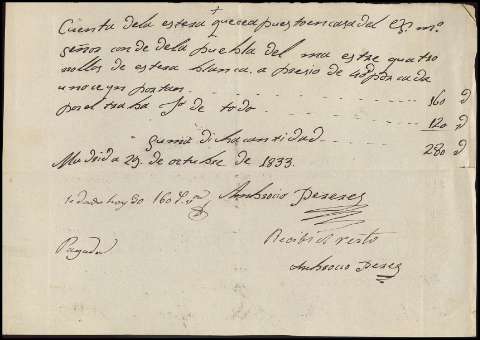 Cuenta dela estera que sea puesto en casa del Exmo
señor conde dela puebla del ma estre quatro
rollos de estera blanca, a presio de 40 d por cada
uno ynportan 160 d
por el traba Jo de todo 120 d
suma dicha cantidad 280 d
Madrid a 29 de octubre de 1833.
dado hoy do 160
Ambrocio Peres
Recibi el resto
Pagada
Ambrocio Peres